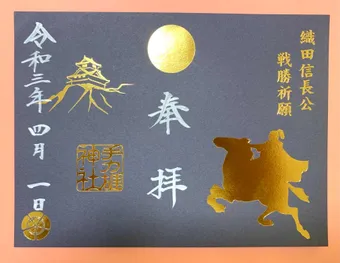 織田信長公
戦勝祈願
奉拝
手力雄
神社
令和三年四月一日